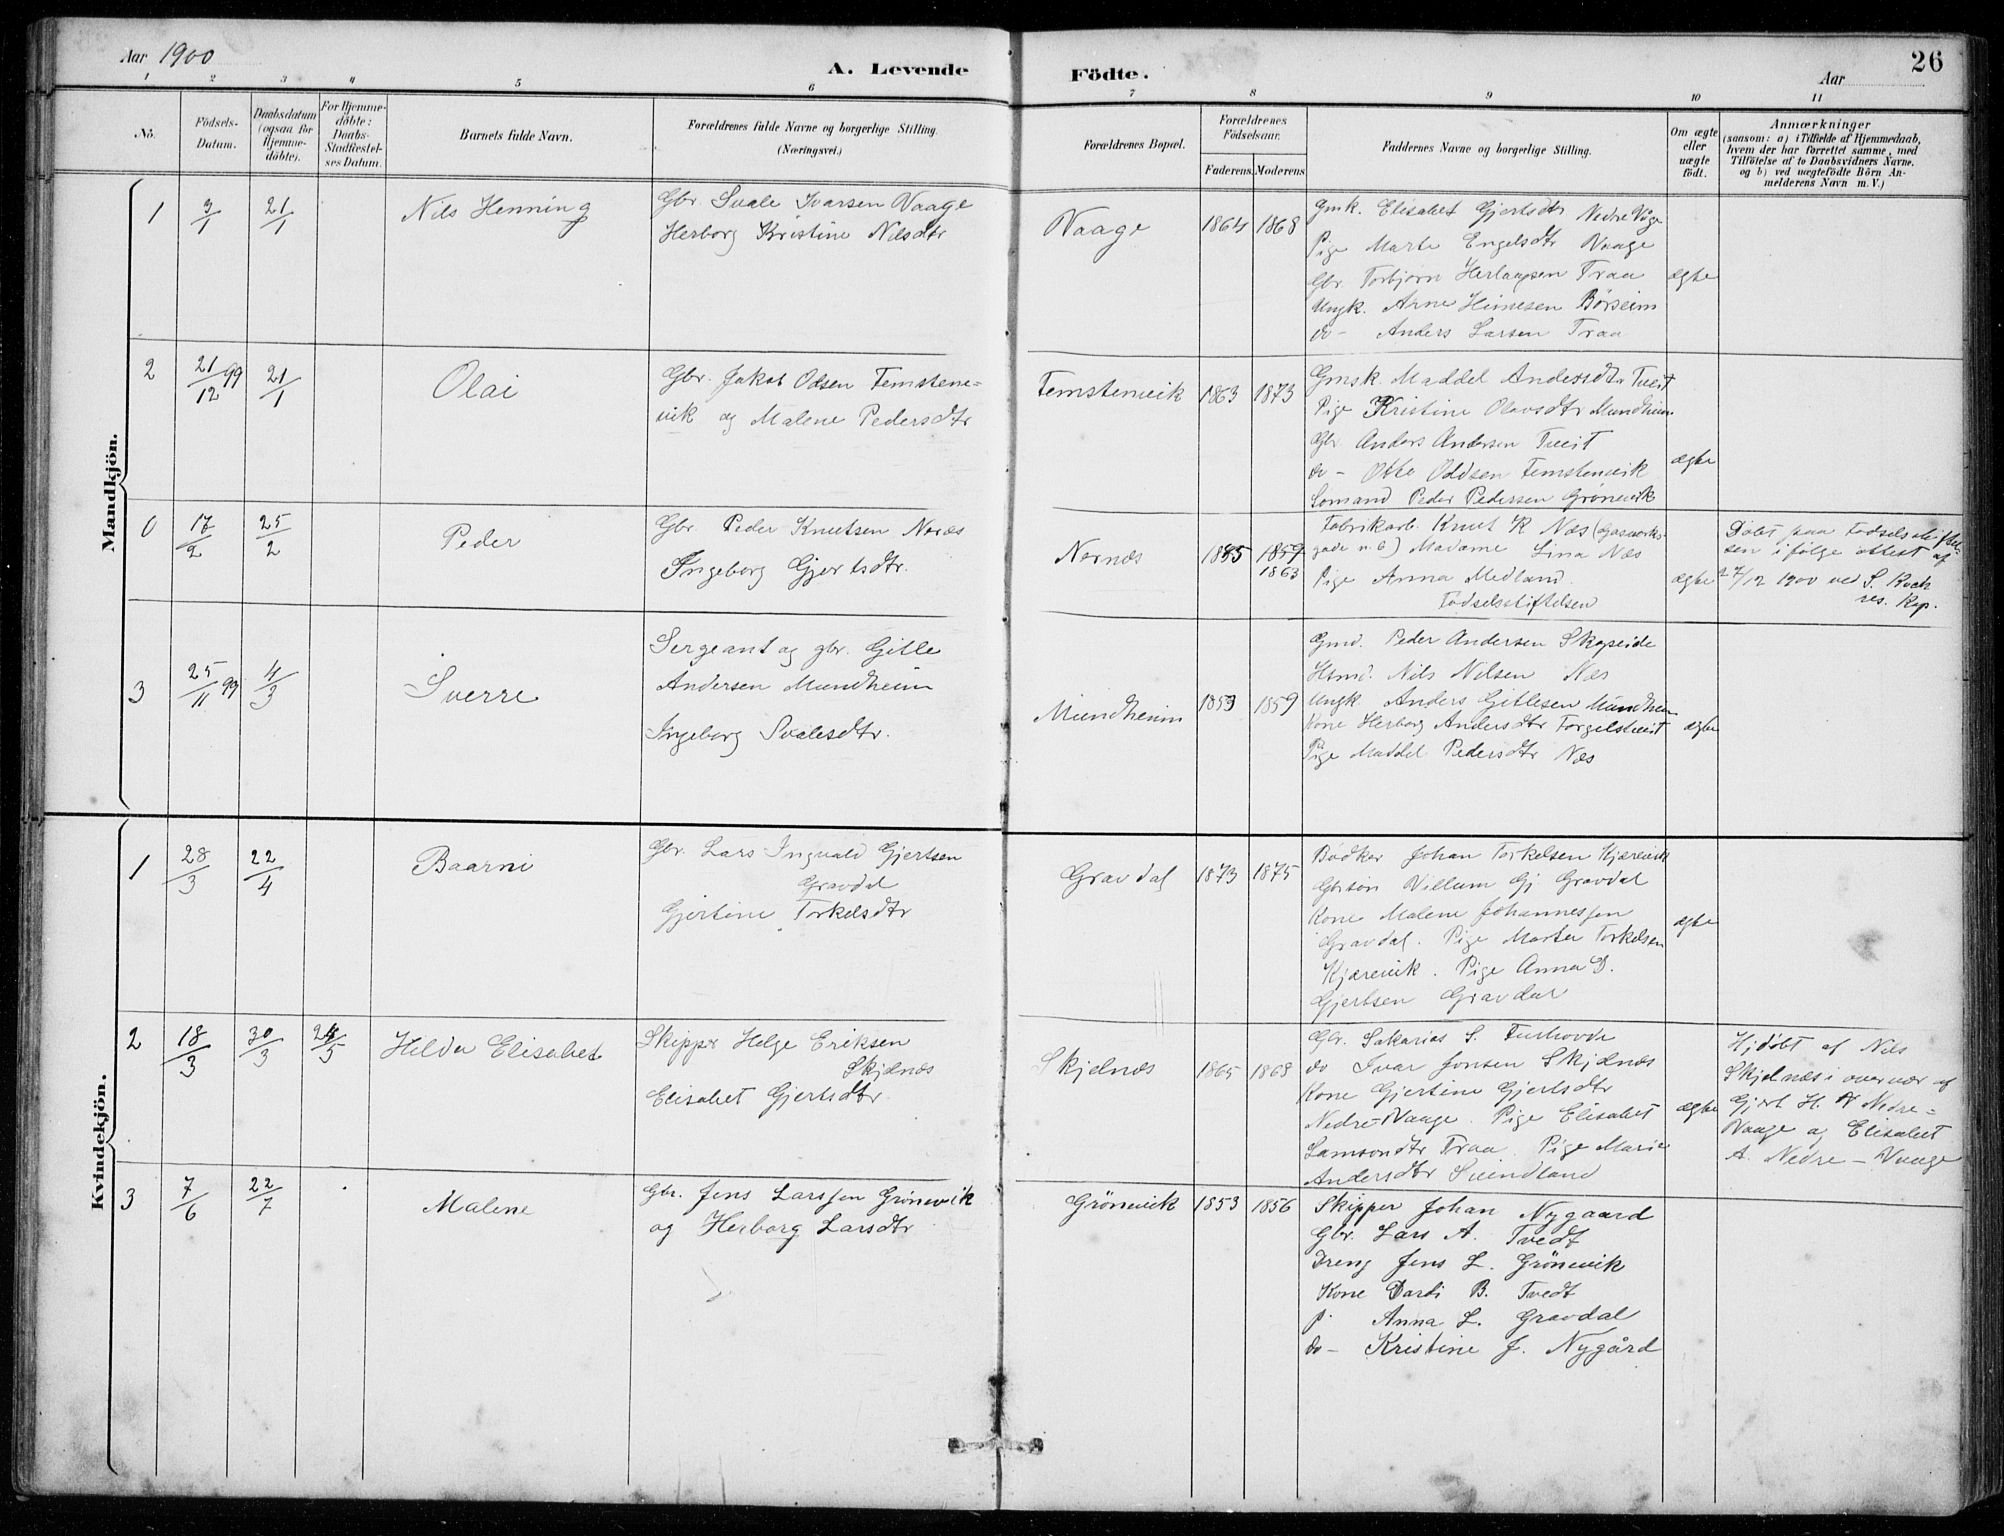 Aar 1900
A. Levende
Födte.
Aar
26
1 2 3 4 5 6 7 8 9 10 11
No.
Födsels-
Datum.
Daabsdatum
(ogsaa for
Hjemme-
döbte).
For Hjemme-
döbte:
Daabs-
Stadfæstel-
ses Datum.
Barnets fulde Navn.
Forældrenes fulde Navne og borgerlige Stilling.
(Næringsvei.)
Forældrenes Bopæl.
Forældrenes
Födselsaar.
Faderens. Moderens.
Faddernes Navne og borgerlige Stilling.
Om ægte
eller
uægte
födt.
Anmærkninger
(saasom: a) i Tilfælde af Hjemmedaab,
hvem der har forrettet samme, med
Tilföielse af to Daabsvidners Navne.
og b) ved uægtefödte Börn An-
melderens Navn m. V.)
Mandkjön.
1 3/1 21/1 Nils Henning
Gbr. Svale Ivarsen Vaage
Herborg Kristine Nilsdtr
Vaage 1864 1868
Gmk. Elisabet Gjertsdtr Nedre Våge
Pige Marta Engelsdtr Vaage
Gbr. Torbjørn Traa
Ungk. Arne Børseim
do - Anders Larsen Traa
ægte
2 21/12 99 21/1 Olai
Gbr. Jakob Odsen Femstene-
vik og Malene Pedersdtr
Femstenevik 1863 1873
Gmsk. Maddel Andersdtr Tveit
Pige Kristine Olavsdtr Mundheim
Gbr Anders Andersen Tveit
do - Otte Oddsen Femstenevik
Sömand Peder Pedersen Grönevik
ægte
0 17/2 25/2 Peder
Gbr. Peder Knutsen Nornæs
Ingeborg Gjertsdtr.
Nornæs 1855 1859
1863
Fabrikarb. Knut K Næs (Gasverks-
gade n. 6) Madame Lina Næs
Pige Anna Medland.
Födselsstiftelsen
ægte
Döbt paa Födselsstiftel-
sen i fölge attest af
27/12 1900 ved S. Koch
res. Kap.
3 25/11 99 4/3 Sverre
Sergeant og gbr. Gitle
Andersen Mundheim
Ingeborg Svalesdtr.
Mundheim 1853 1859
Gmd. Peder Andersen Skogseide
Hsmd. Nils Nilsen Næs
Ungk. Anders Gitlesen Mundheim
Kone Herborg Andersdtr Torgelstveit
Pige Maddel Pedersdtr Næs
ægte
Kvindekjön.
1 28/3 22/4 Baarni
Gbr. Lars Ingvald Gjertsen
Gravdal
Gjertine Torkelsdtr
Gravdal 1873 1875
Bödker Johan Torkelsen Kjærevik
Gbrsön Villum Gj. Gravdal
Kone Malene Johannessen
Gravdal. Pige Marta Torkelsen
Kjærevik. Pige Anna D.
Gjertsen Gravdal
ægte
2 18/3 30/3 24/5 Hilda Elisabet
Skipper Helge Eriksen
Skjelnæs
Elisabet Gjertsdtr
Skjelnæs 1865 1868
Gbr. Sakarias S. Furhovde
do Ivar Jonsen Skjelnæs
Kone Gjertine Gjertsdtr
Nedre-Vaage. Pige Elisabet
Samsondtr Traa. Pige Marie
Andersdtr Svendland
ægte
Hjdöbt af Nils
Skjelnæs i overvær af
Gjert H. Nedre-
Vaage og Elisabet
A. Nedre-Vaage
3 7/6 22/7 Malene
Gbr. Jens Larssen Grönevik
og Herborg Larsdtr
Grönevik 1853 1856
Skipper Johan Nygaard
Gbr. Lars A. Tvedt
Dreng Jens L. Grönevik
Kone Dardi B. Tvedt
p. Anna L. Gravdal
do - Kristine J. Nygård